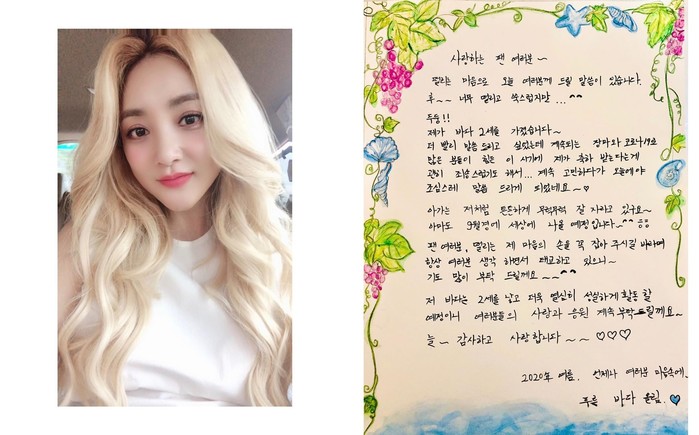 사랑하는 팬 여러분~
떨리는 마음으로 오늘 여러분께 드릴 말씀이 있습니다.
후~~ 너무 떨리고 쑥스럽지만...^^
두둥!!
제가 바다 2세를 가졌습니다~
더 빨리 말씀 드리고 싶었는데 계속되는 장마와 코로나19로
많은 분들이 힘든 이 시기에 제가 축하 받는다는게
괜히 죄송스럽기도 해서... 계속 고민하다가 오늘에야
조심스레 말씀 드리게 되었네요~♡
아가는 저처럼 튼튼하게 무럭무럭 잘 자라고 있구요~
아마도 9월경에 세상에 나올 예정입니다~^^
팬 여러분, 떨리는 제 마음의 손을 꼭 잡아 주시길 바라며
항상 여러분 생각 하면서 태교하고 있으니~
기도 많이 부탁 드릴께요~~^^
저 바다는 2세를 낳고 더욱 열심히 성실하게 활동 할
예정이니 여러분들의 사랑과 응원 계속 부탁드릴께요~
늘~ 감사하고 사랑합니다~~♡♡♡
2020년 여름. 언제나 여러분 마음속에.
푸를 바다 올림.♥